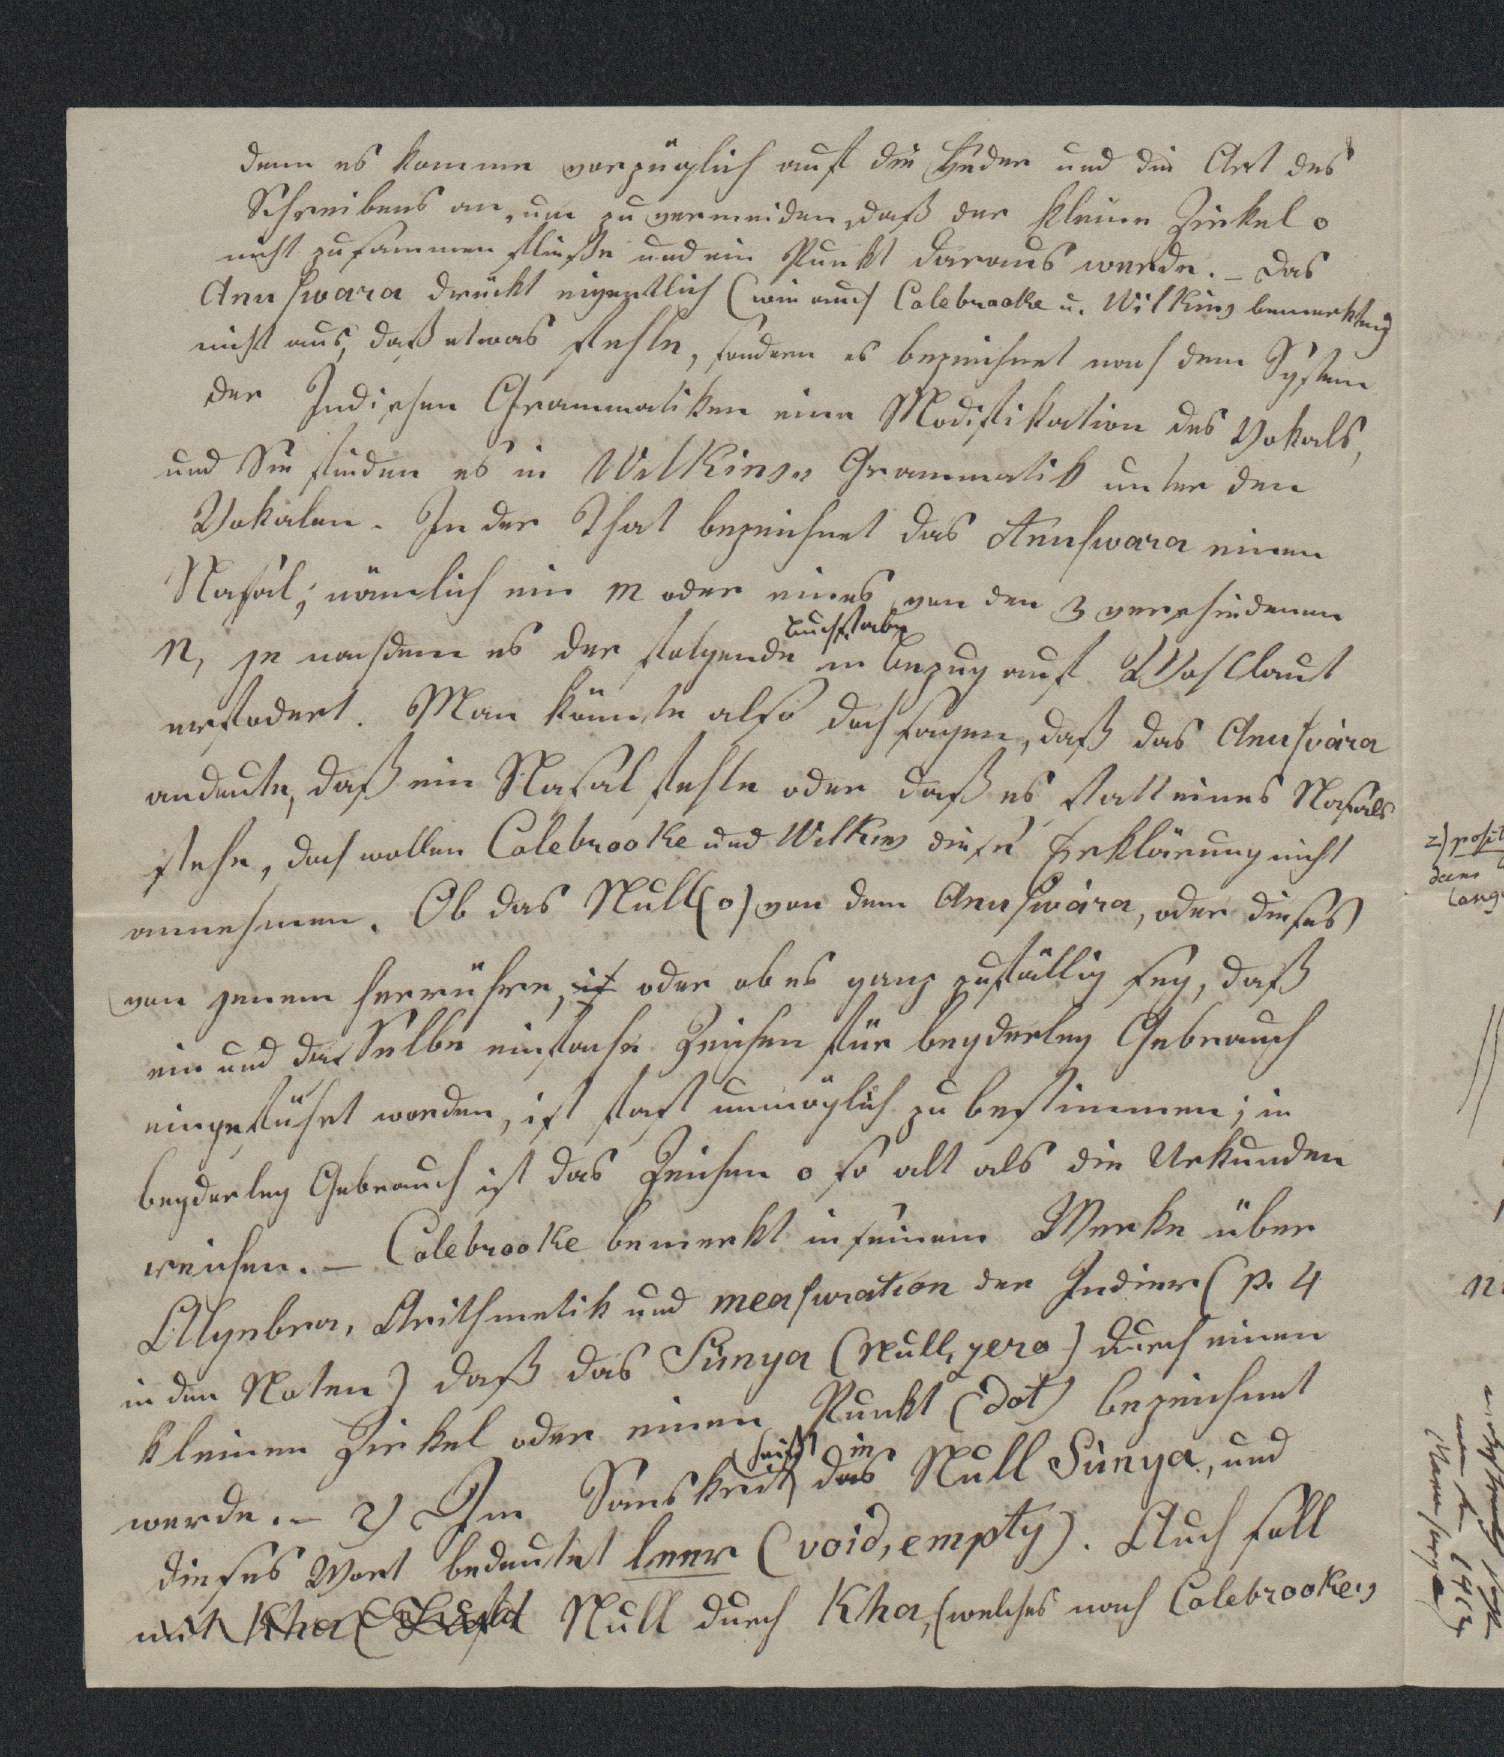 denn es komme vorzüglich auf die Feder und die Art des
Schreibens an, um zu vermeiden, daß der kleine Zirkel o
nicht zusammen fließe und ein Punkt daraus werde. – Das
Anuswara drückt eigentlich (wie auch Colebrooke u. Wilkins bemerkten)
nicht aus, daß etwas fehle, sondern es bezeichnet nach dem System
der Indischen Grammatiker eine Modifikation des Vokals,
und Sie finden es in Wilkins's Grammatik unter den
Vokalen. In der That bezeichnet das Anuswara einen
Nasal; nämlich ein m oder eines von den 3 verschiedenen
n, je nachdem es der folgende Buchstabe in Bezug auf Wohllaut
erfodert. Man könnte also doch sagen, daß das Anusvára
andeute, daß ein Nasal fehle oder daß es statt eines Nasals
stehe, doch wollen Colebrooke und Wilkins diese Erklärung nicht
annehmen. Ob das Null (o) von dem Anuswára, oder dieses
von jenem herrühre, ist oder ob es ganz zufällig sey, daß
ein und das Selbe einfache Zeichen für beyderley Gebrauch
eingeführt worden, ist fast unmöglich zu bestimmen; in
beyderley Gebrauch ist das Zeichen o so alt als die Urkunden
reichen. – Colebrooke bemerkt in seinem Werke über
Algebra, Arithmetik und measuration der Indier (p. 4
in den Noten) daß das Súnya (Null, zero) durch einen
kleinen Zirkel oder einen Punkt (dot) bezeichnet
werde. – 2) Im Sanskrit heißt die das Null Súnya, und
dieses Wort bedeutet leer (void, empty). Auch soll
mit Kha ( Null durch Kha, (welches nach Colebrooke's
2) posit
dans
lang